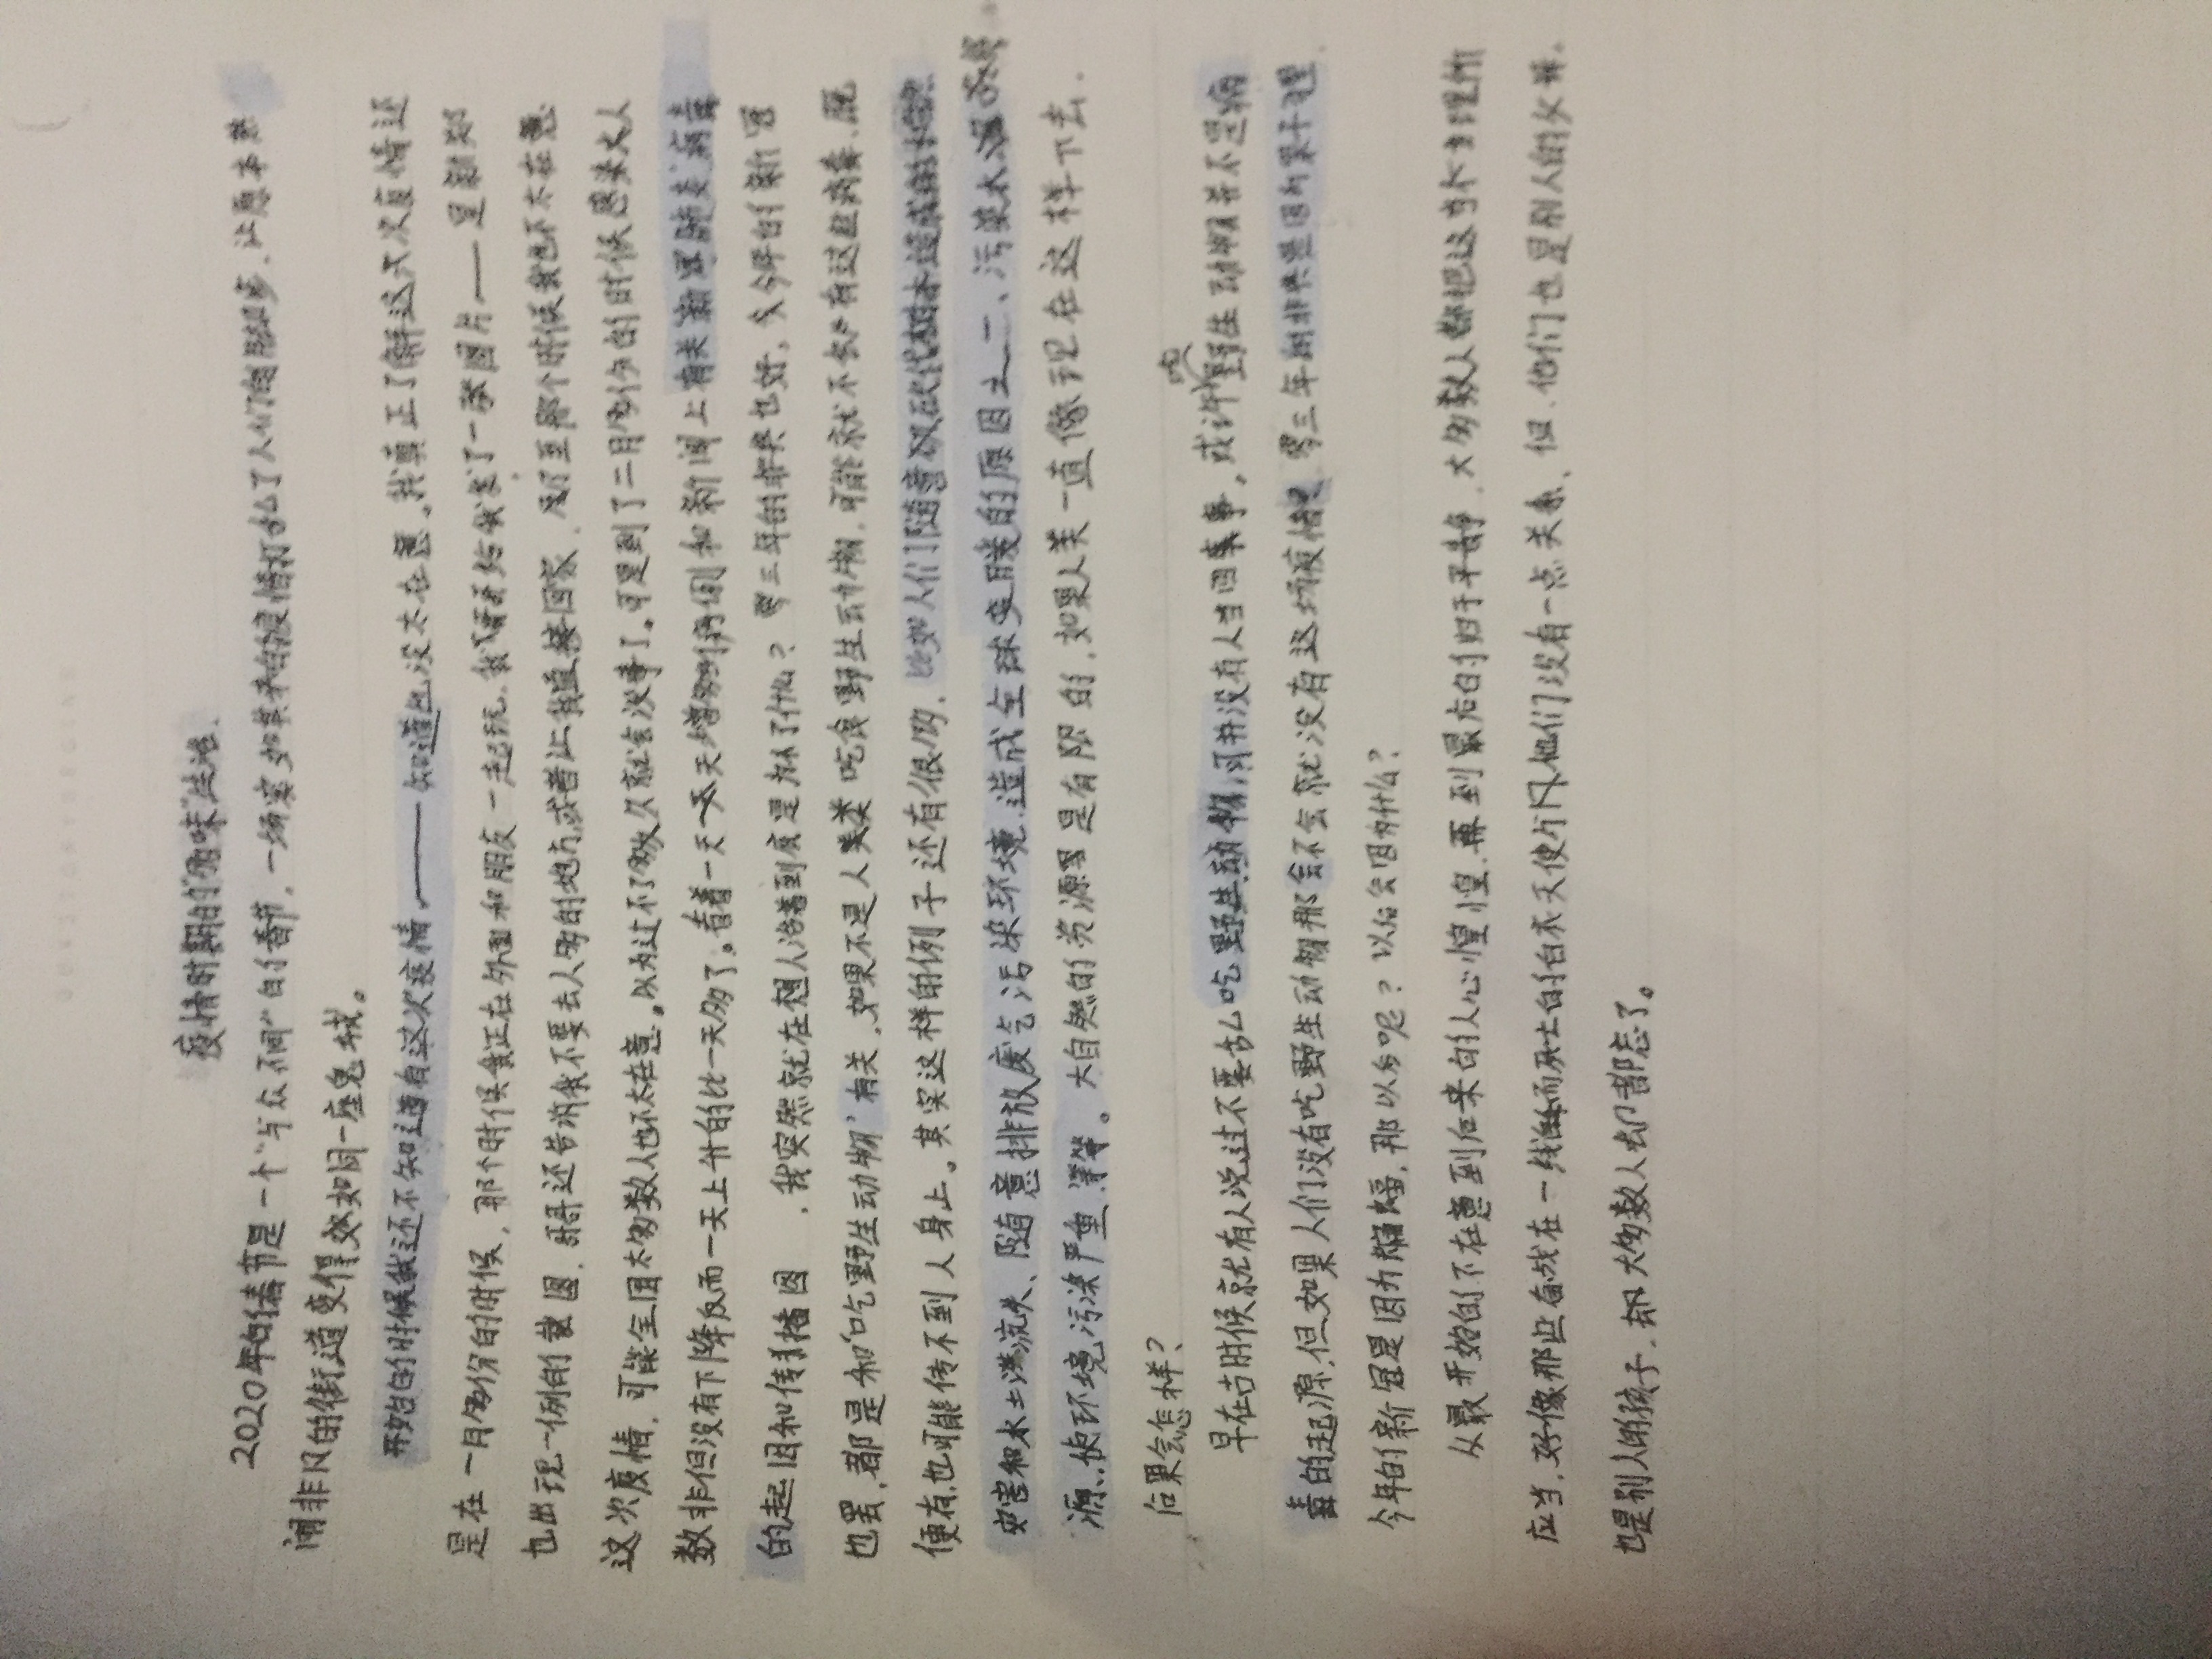 疫情时期的“ 味”生活.
2020年的春节是一个“与众不同”的春节,一场突如其来的疫情打乱了人们的脚步,让原本热
闹非凡的街道变得犹如同一座鬼城。
开始的时候我还不知道有这次疫情。——知道也没太在意。我真正了解这次疫情还
是在一月多份的时候,那个时候我正在外面和朋友一起玩,我哥哥给我发了一张图片——是新郑
也出现一例的截图,哥哥还告诉我不要去人多的地方,或者让我直接回家,甚至那个时候我也不太在意
这次疫情,可能全国大多数人也不太在意。以为过不了多久就会没事了。可是到了二月多份的时候感染人
数非但没有下降反而一天上升的比一天多了。看着一天天增多的病例和新闻上有关“新冠肺炎”病毒
的起因和传播图,我突然就在想人活着到底是为了什么?零三年的非典也好,今年的新冠
也罢,都是和“吃野生动物”有关,如果不是人类吃食野生动物,可能就不会有这些病毒,既
便有,也可能传不到人身上。其实这样的例子还有很多,比如人们随意砍伐树木造成的
灾害和水土流失、随意排放废气污染环境,造成全球变暖的原因之一、污染水
源,使环境污染严重,等等。大自然的资源是有限的,如果人类一直像现在这样下去.
后果会怎样?
早在古时候就有人说过不要去吃野生动物,可并没有人当回事,或许吃野生动物并不是病
毒的起源,但如果人们没有吃野生动物那会不会就没有这场疫情,零三年非典是因为果子狸
今年的新冠是因为蝙蝠,那以后呢?以后会因为什么?
从最开始的不在意到后来的人心惶惶,再到最后的归于平静,大多数人都把这当个理所
应当,好像那些奋战在一线而死去的白衣天使与他们没有一点关系,但,他们也是别人的父母,
也是别人的孩子,却大多数人却都忘了。